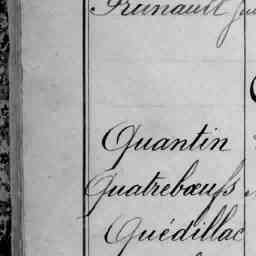 Prunault
Quantin
Quatrebœufs
Quédillac